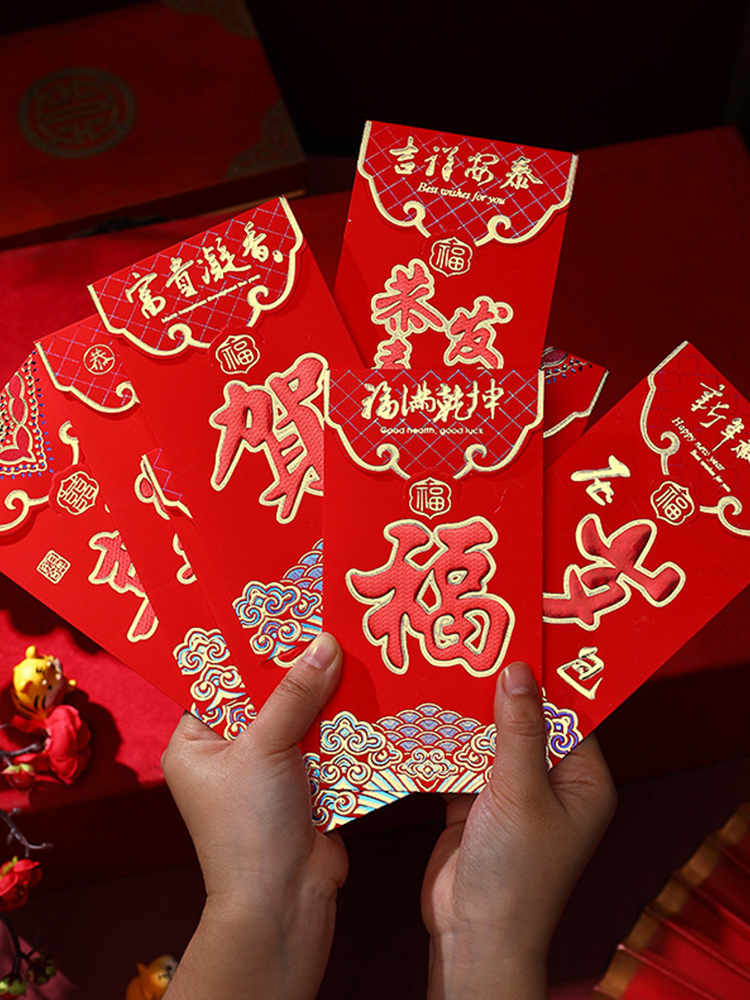 吉祥安泰
Best wishes for you
福
恭
发
富貴凝香
福
贺
恭
福满乾坤
Good health, good luck
福
福
新年
Happy new year
福
好
包